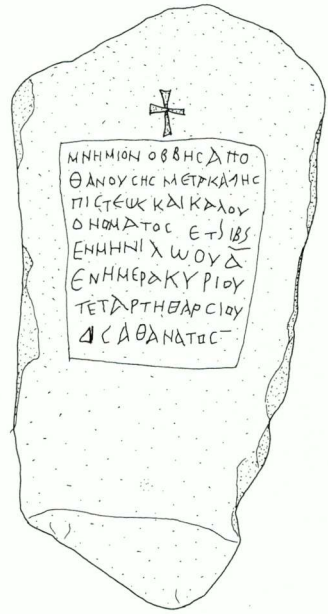 ΜΝΗΜΙΟΝ ΟΒΒΗϹ ΑΠΟ
ΘΑΝΟΥϹΗϹ ΜΕΤΑ ΚΑΛΗϹ
ΠΙϹΤΕΩϹ ΚΑΙ ΚΑΛΟΥ
ΟΝΟΜΑΤΟϹ ΕΤS ΙΒS
ΕΝ ΜΗΝΙ ΛΩΟΥ Α̅
ΕΝ ΗΜΕΡΑ ΚΥΡΙΟΥ
ΤΕΤΑΡΤΗ ΘΑΡϹΙ ΟΥ
ΔΙϹ ΑΘΑΝΑΤΟϹ